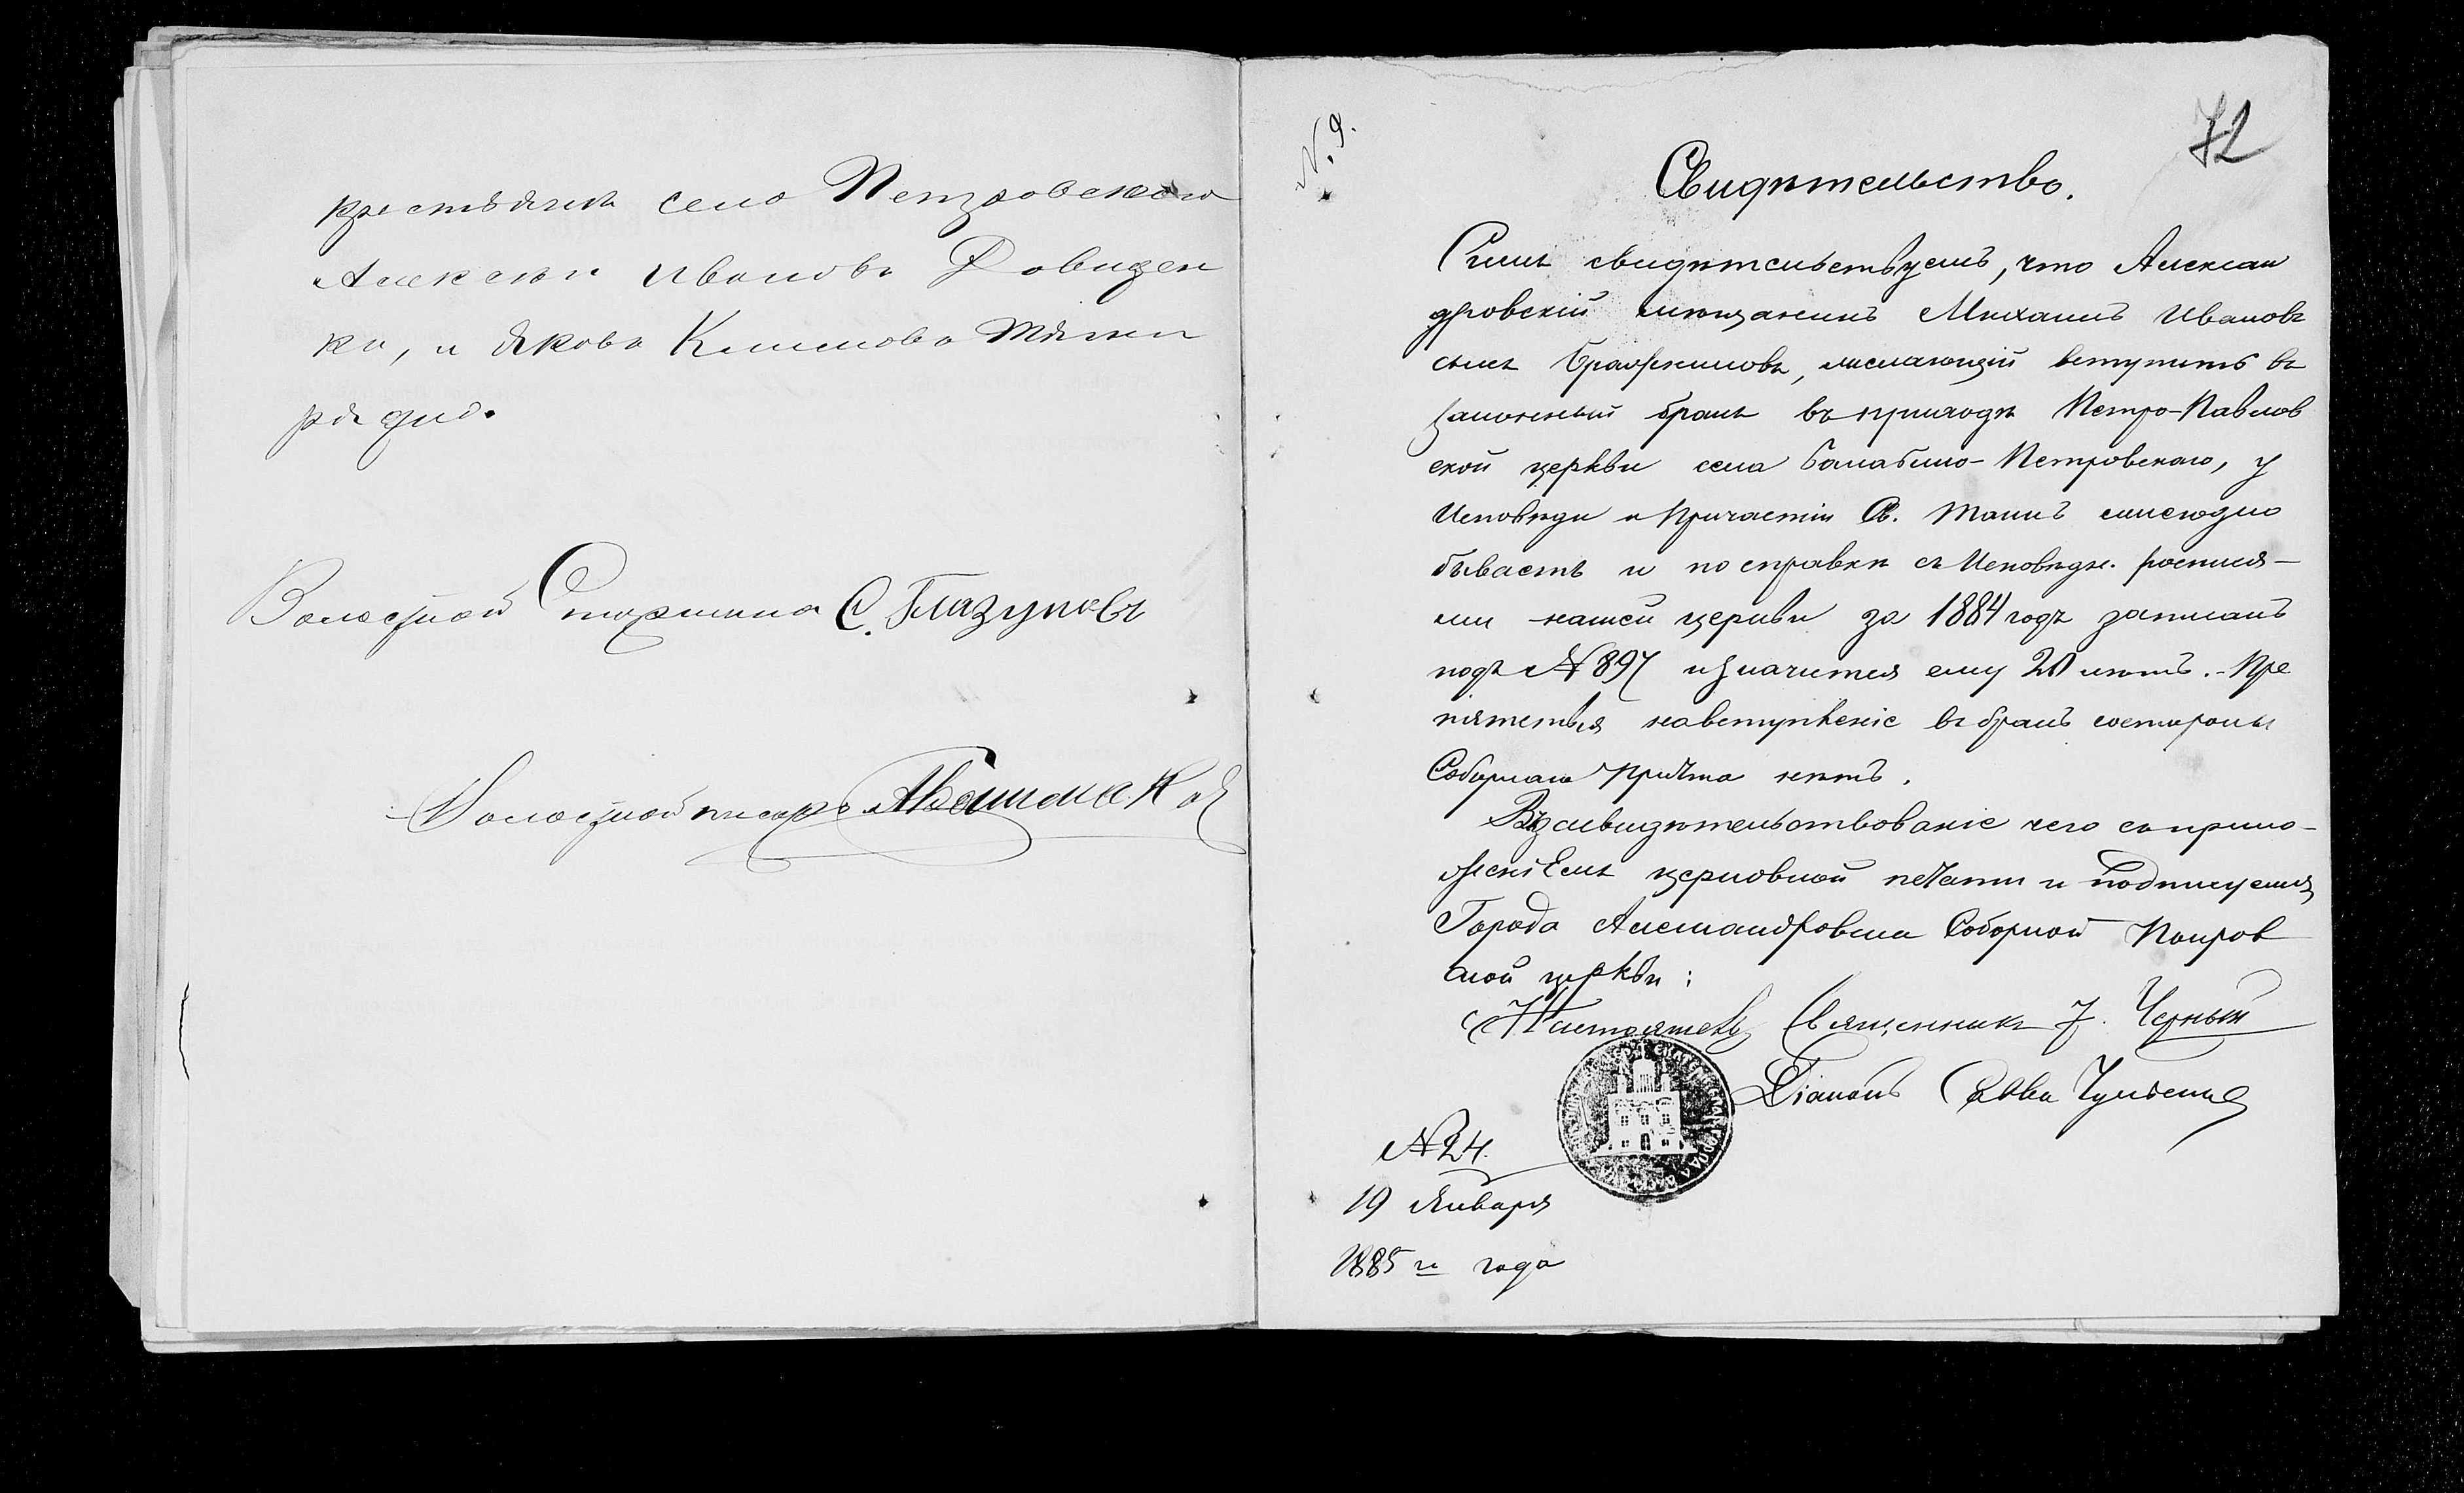 крестьяне села Петровскаго
Алексѣй Ивановъ Довиден
ко, и Якова Климова Тяжко
ряднo.
Волостной Старшина С. Глазуновъ
Волостной писарь
№. 9.
72
Свидѣтельство.
Симъ свидѣтельствуемъ, что Алексан
дровскій мѣщанинъ Михаилъ Ивановъ
сынъ желающій вступить въ
законный бракъ въ приходѣ Петро-Павлов
ской церкви села Балабино-Петровскаго, у
Исповѣди и Причастія Св. Таинъ ежегодно
бываетъ и по справкѣ съ Исповѣдн. роспися-
ми нашей церкви за 1884 годъ записанъ
подъ № 897 и значится ему 20 лѣтъ. - Пре
пятствія на вступленіе въ бракъ со стороны
Соборнаго Причта нѣтъ.
Въ засвидѣтельствованіе чего съ прило-
женіемъ церковной печати и подписуемся
Города Александровска Соборной Покров
ской церкви:
Настоятель Священникъ Черный
Діаконъ Савва
№ 24.
19 Января
1885 го года